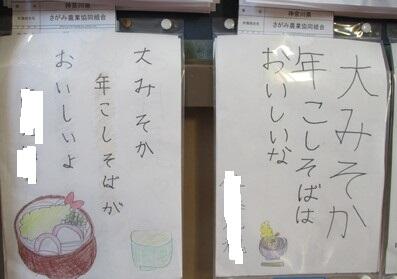 神奈川県
さがみ農業協同組合
大みそか
年こしそばが
おいしいよ
神奈川県
さがみ農業協同組合
大みそか
年こしそばは
おいしいな